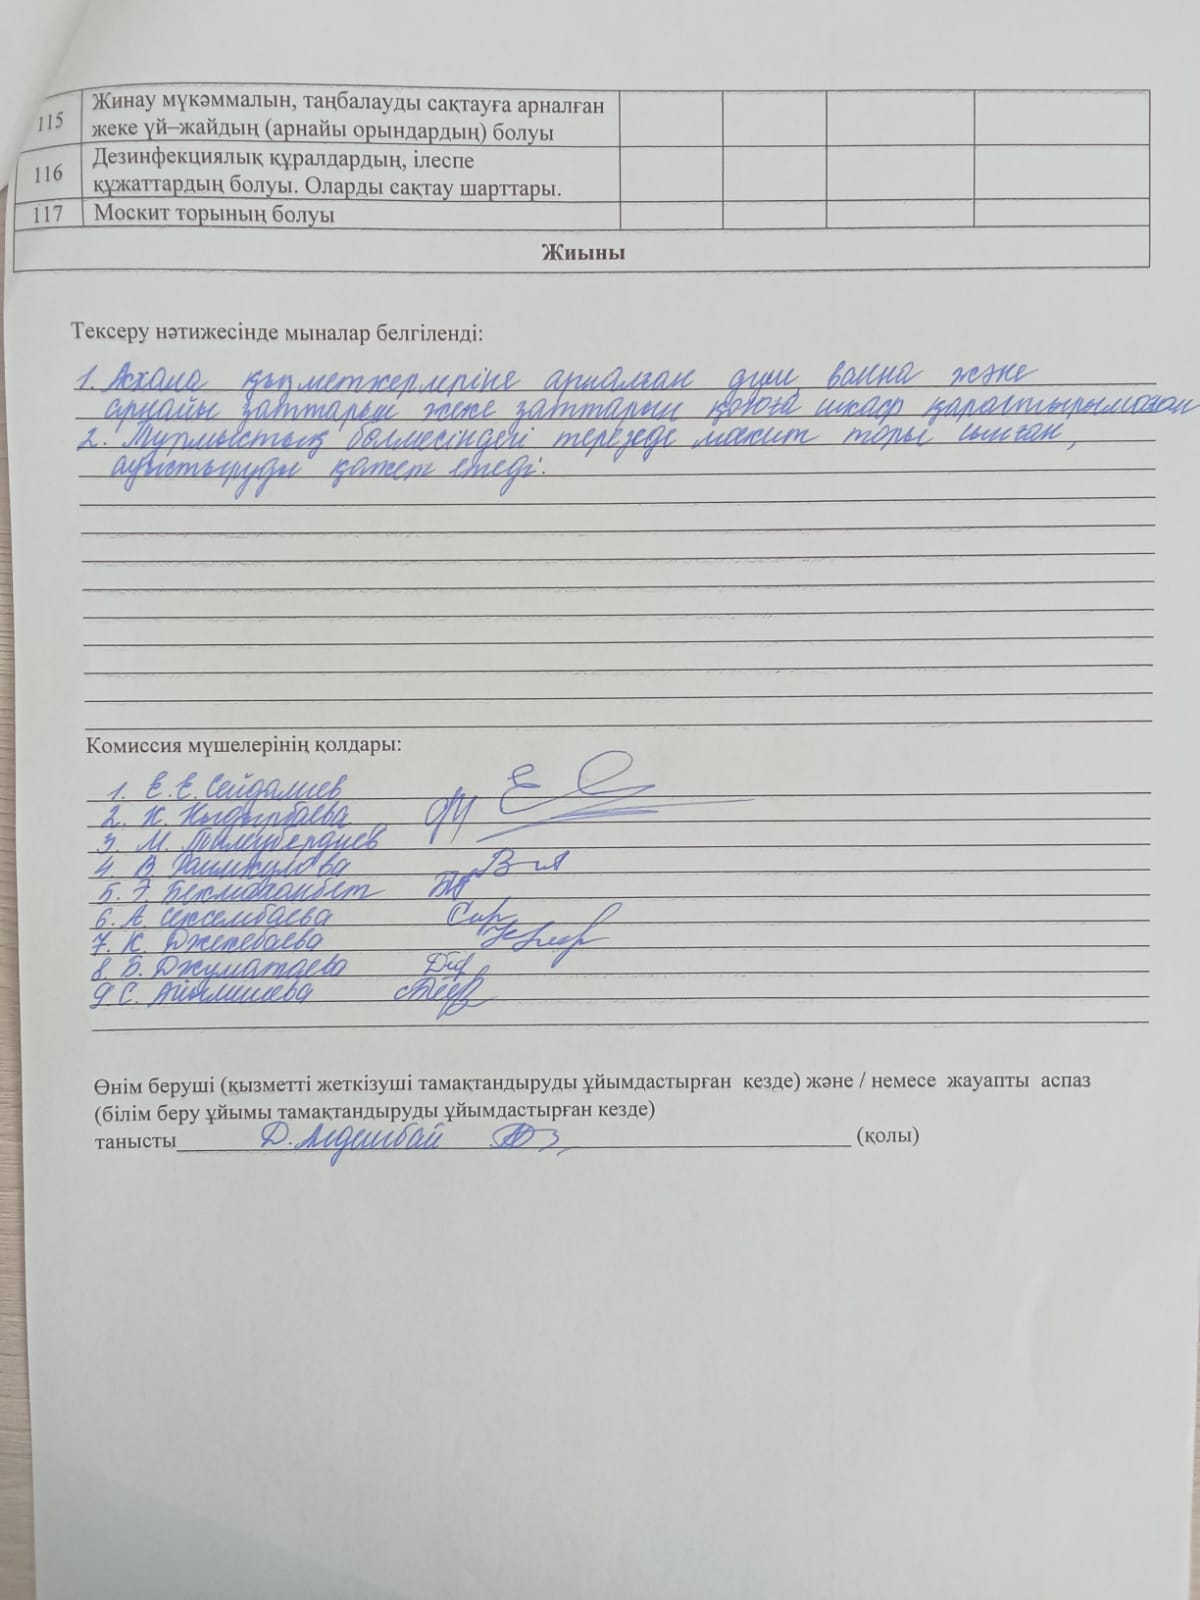 115 Жинау мүкәммалын, таңбалауды сақтауға арналған
жеке үй–жайдың (арнайы орындардың) болуы
116 Дезинфекциялық құралдардың, ілеспе
құжаттардың болуы. Оларды сақтау шарттары.
117 Москит торының болуы
Жиыны
Тексеру нәтижесінде мыналар белгіленді:
1. Асхана қызметкерлеріне арналған душ ванна және
арнайы заттарын жеке заттарын қоюға шкаф қарастырылмаған
2. Тұрмыстық бөлмесіндегі терезеде москит торы сынған,
ауыстыруды қажет етеді.
Комиссия мүшелерінің қолдары:
1. Е. Е. Сейдалиев
2. К. Кыдырбаева
3. М. Тилеубердиев
4. В. Раимкулова
5. Э. Бекмаханбет
6. А. Сексембаева
7. К. Джетебаева
8. Б. Джуматаева
9. С.
Өнім беруші (қызметті жеткізуші тамақтандыруды ұйымдастырған кезде) және / немесе жауапты аспаз
(білім беру ұйымы тамақтандыруды ұйымдастырған кезде)
танысты Д. (қолы)